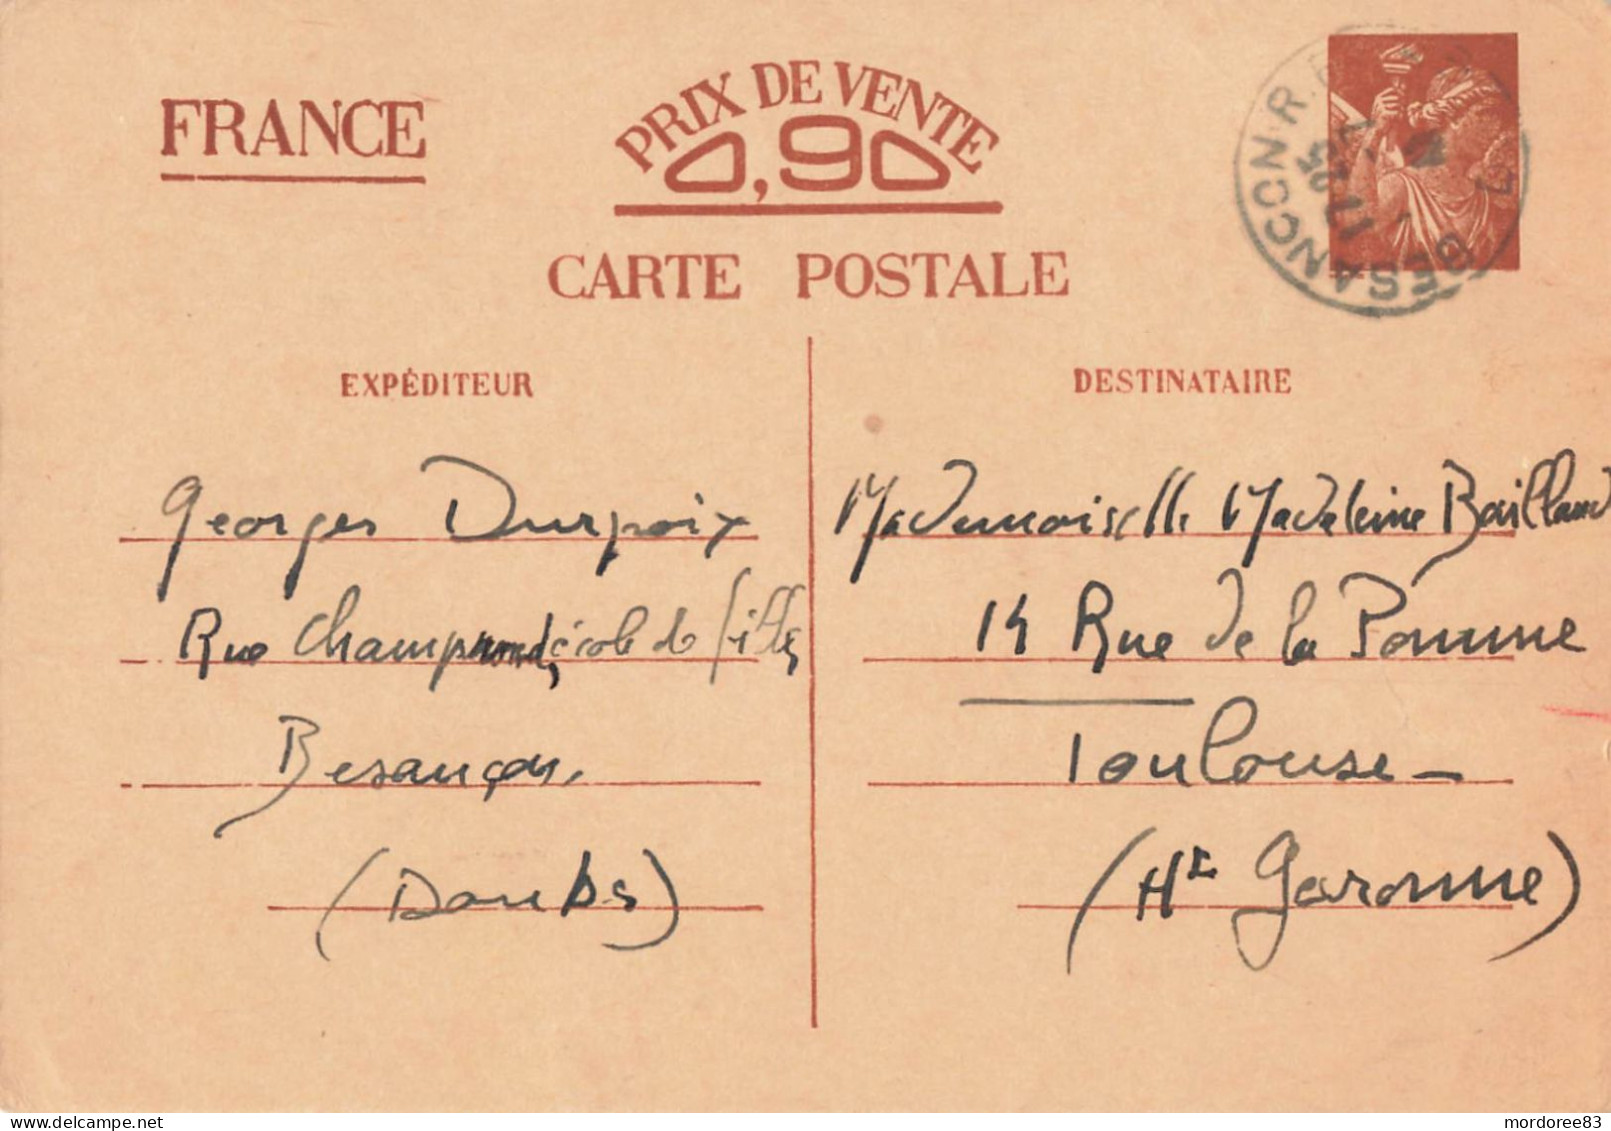 FRANCE
PRIX DE VENTE
0,90
CARTE POSTALE
BESANCON R.P.
17
EXPÉDITEUR
Georges Durpoix
Rue Champrond, école de filles
Besançon,
(Doubs)
DESTINATAIRE
Mademoiselle Madeleine Baillaud
14 Rue de la Pomme
Toulouse -
(Hte Garonne)
mordoree83